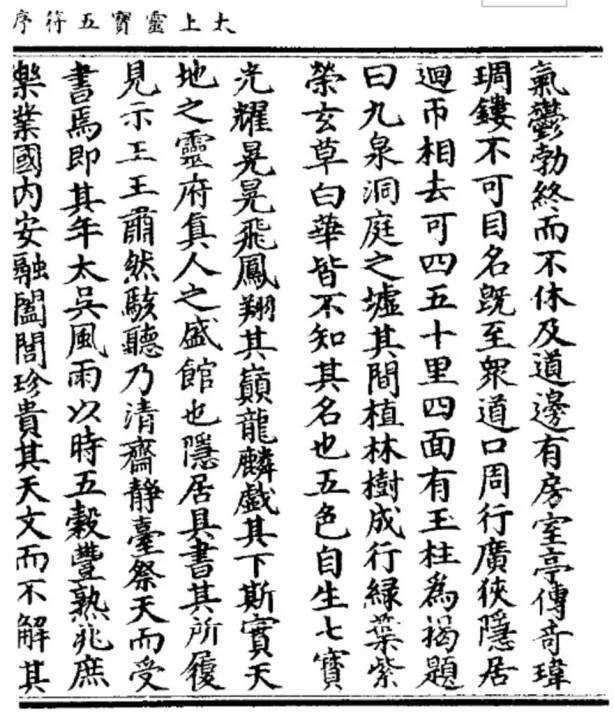 太上靈寶五符序
氣鬱勃終而不休及道邊有房室亭傳奇瑋
琱鏤不可目名旣至衆道口周行廣狹隱居
迴帀相去可四五十里四面有玉柱爲揭題
曰九泉洞庭之墟其間植林樹成行綠葉紫
榮玄草白華皆不知其名也五色自生七寶
光耀晃晃飛鳳翔其巔龍麟戲其下斯實天
地之靈府眞人之盛館也隱居具書其所履
見示王王肅然駭聽乃清齋靜臺祭天而受
書焉即其年太吳風雨以時五穀豐熟兆庶
樂業國內安融闔閭珍貴其天文而不解其